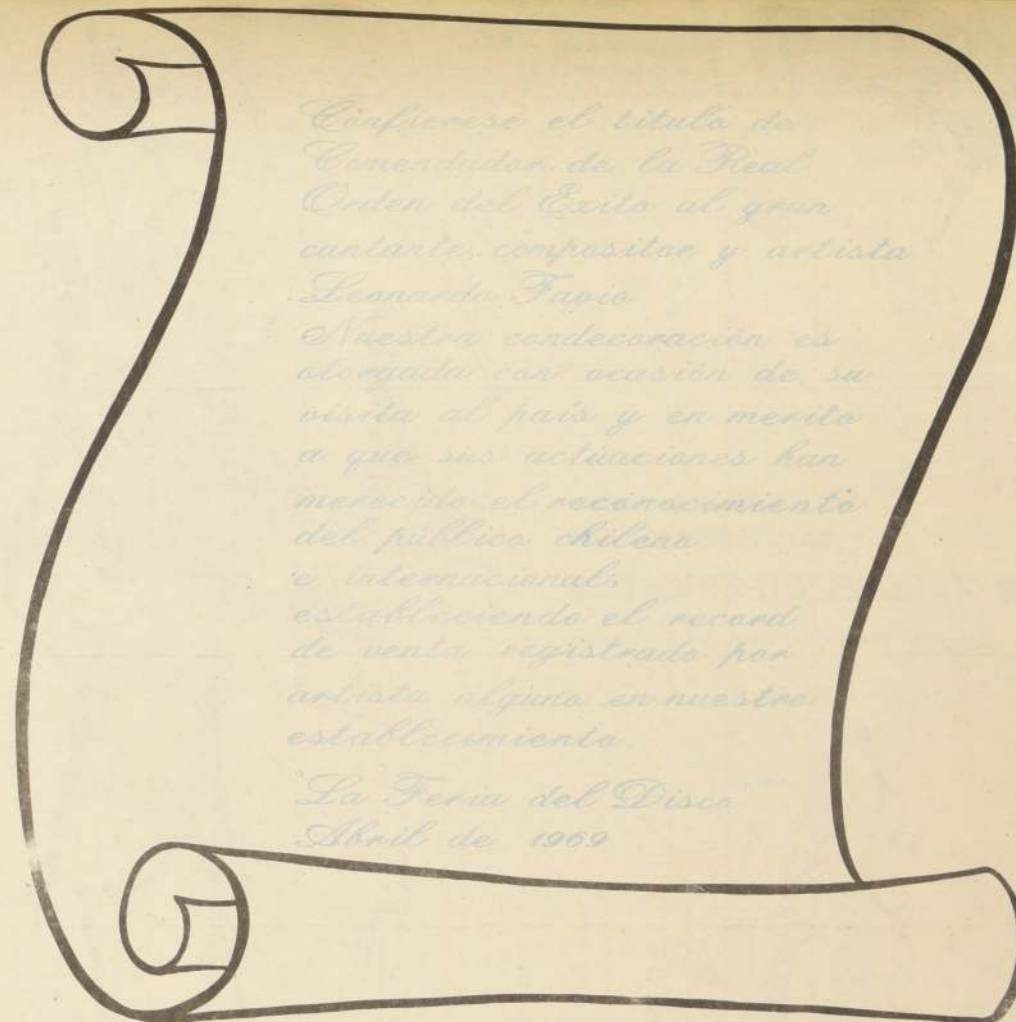 Confierese el título de
Comendador de la Real
Orden del Exito al gran
cantante, compositor y artista
Leonardo Favio
Nuestra condecoración es
otorgada con ocasión de su
visita al país y en merito
a que sus actuaciones han
merecido el reconocimiento
del público chileno
e internacional,
estableciendo el record
de venta registrado por
artista alguno en nuestro
establecimiento.
"La Feria del Disco"
Abril de 1969